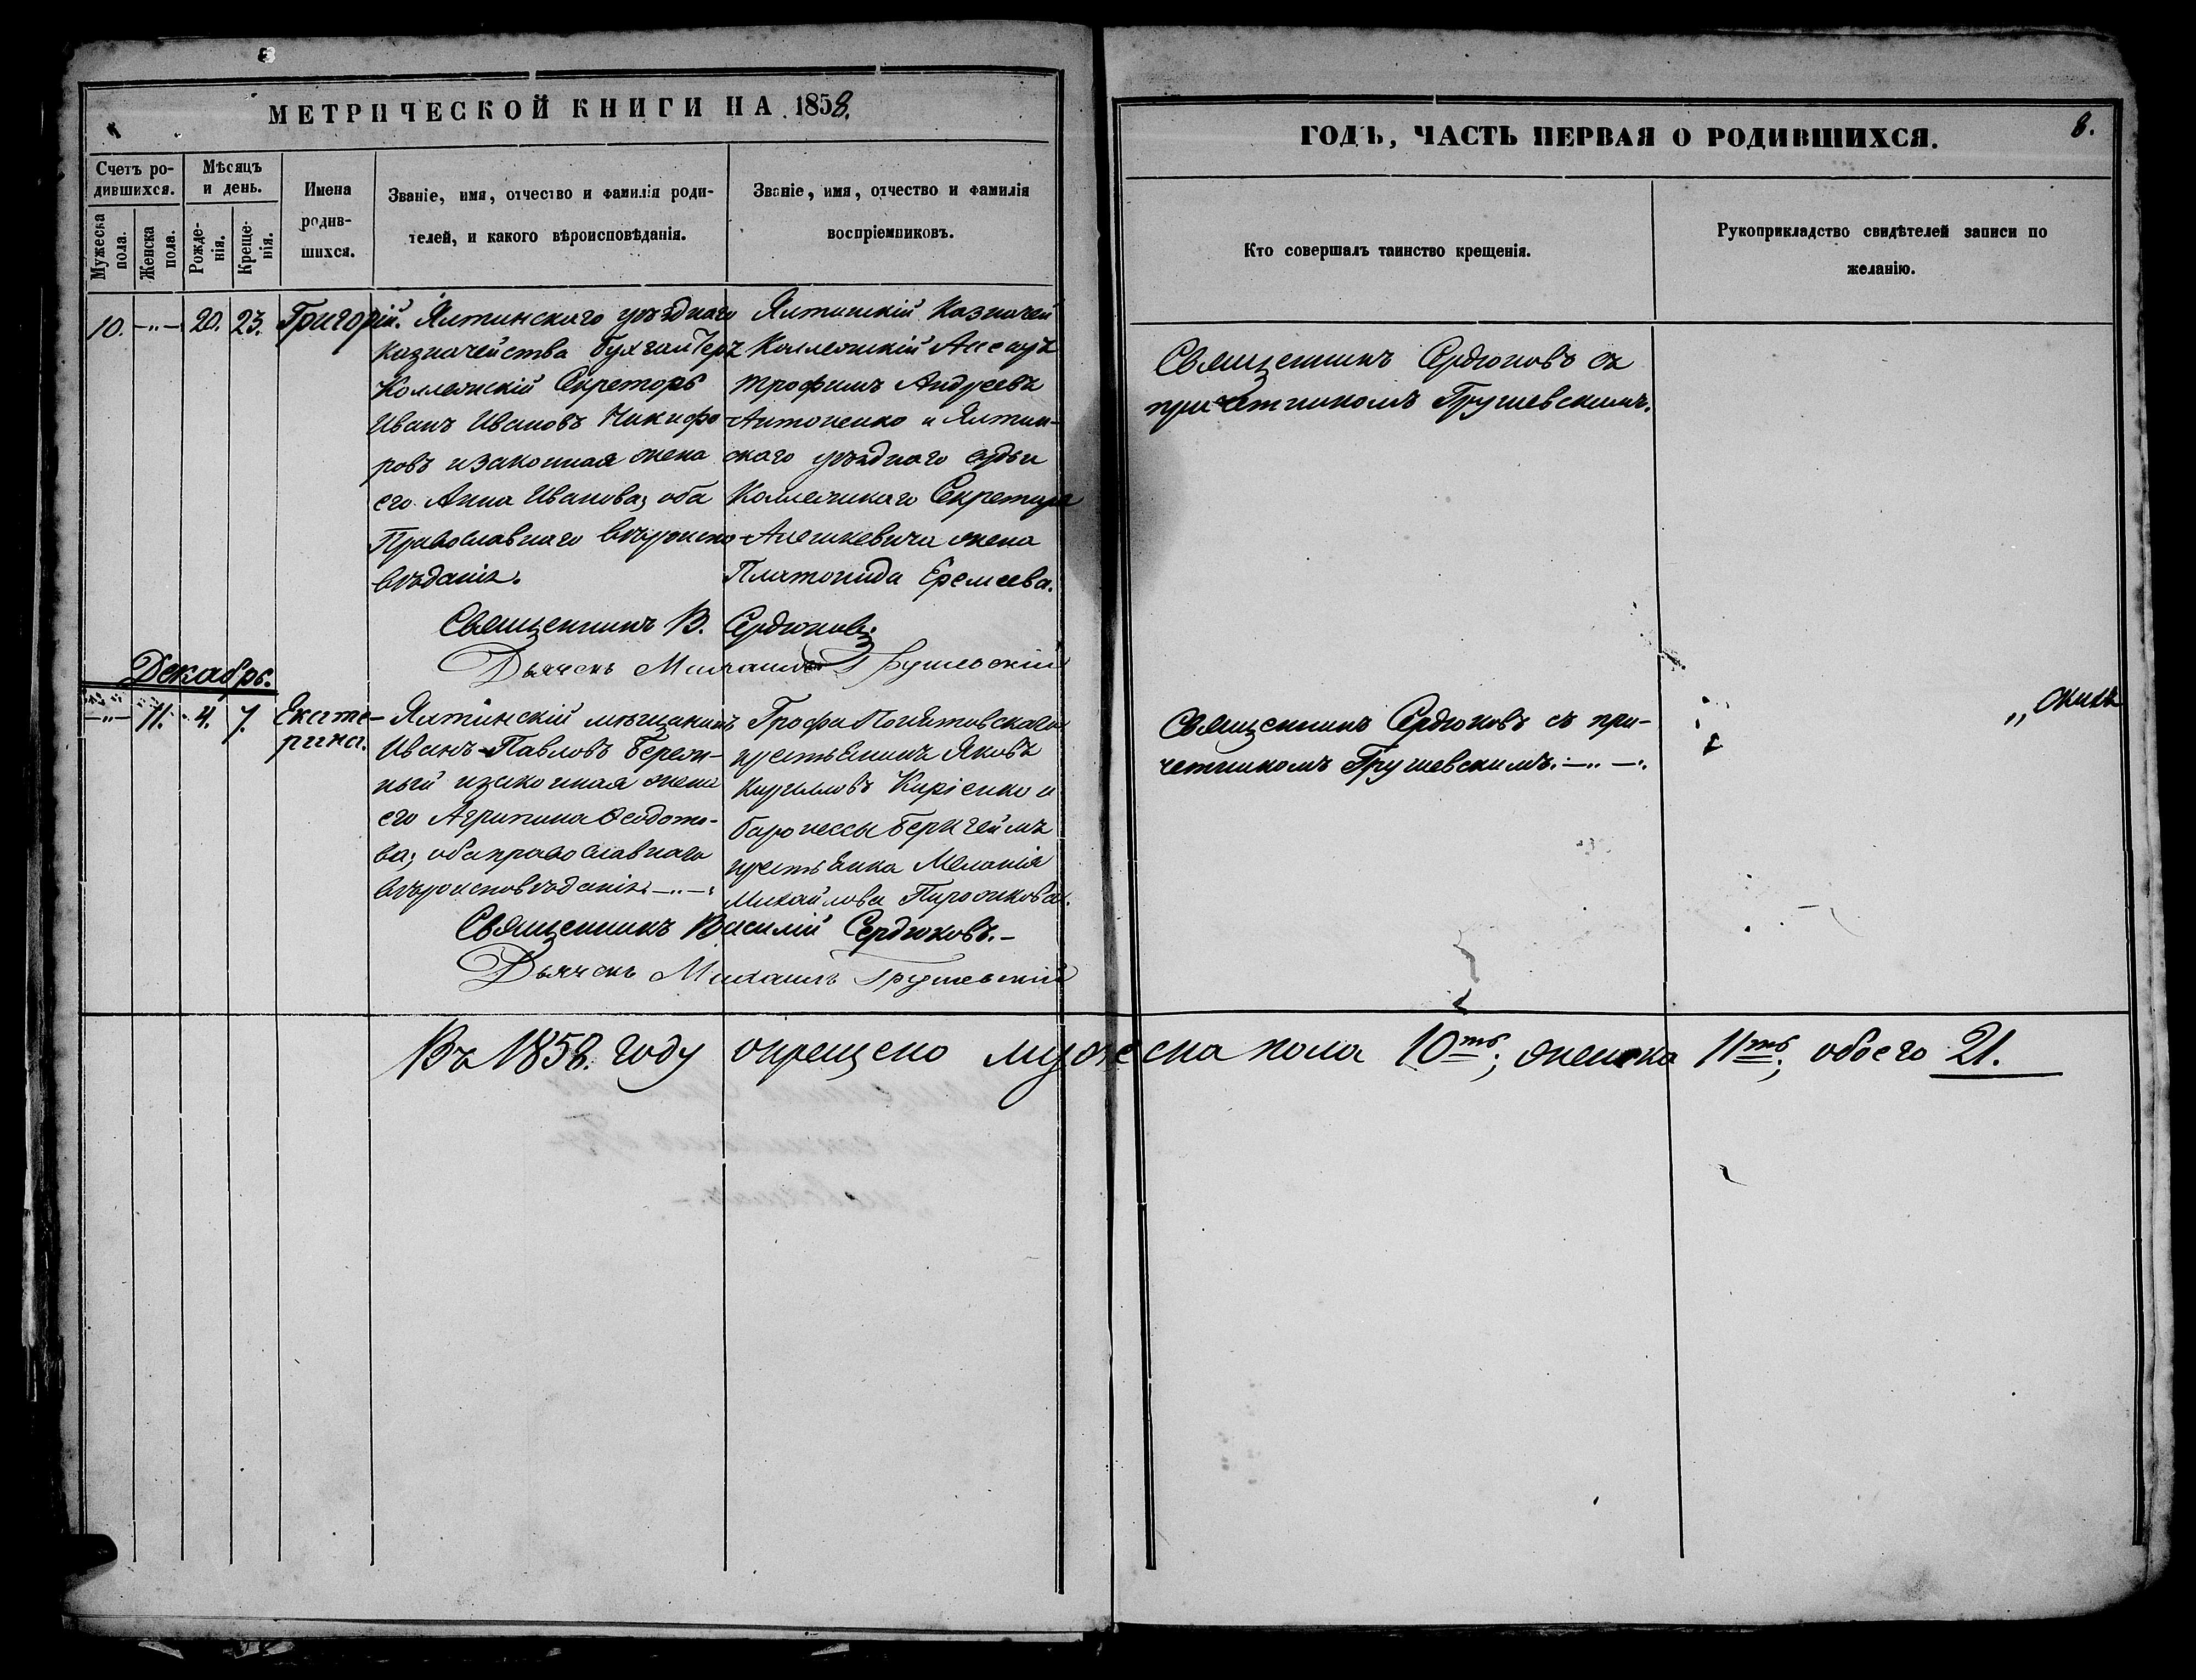 МЕТРИЧЕСКОЙ КНИГИ НА 1858.
Счетъ родившихся.
Мужеска пола.
Женска пола.
Мѣсяцъ и день.
Рожденія.
Крещенія.
Имена родившихся.
Званіе, имя, отчество и фамилія родителей, и какого вѣроисповѣданія.
Званіе, имя, отчество и фамилія воспріемниковъ.
10. —"— 20. 23. Григорій.
Ялтинскаго уѣзднаго
казначейства бухгалтеръ
Коллежскій Секретарь
Иванъ Ивановъ Никифо-
ровъ и законная жена
его Анна Иванова; оба
Православнаго вѣроиспо-
вѣданія.
Ялтинскій Казначей
Коллежскій Ассесоръ
Трофимъ Андреевъ
Антоненко и Ялтин-
скаго уѣзднаго судьи
Коллежскаго Секретаря
жена
Платонида Еремеева.
Священникъ В. Сердюковъ
Дьячекъ Михаилъ Грушевскій
Декабрь.
—"— 11. 4. 7. Екате-
рина.
Ялтинскій мѣщанинъ
Иванъ Павловъ Береж-
ный и законная жена
его Агрипина Ѳеодото-
ва; оба православнаго
вѣроисповѣданія. —"—
Графа Понятовскаго
крестьянинъ Яковъ
Кириловъ Киріенко и
баронессы Беркгеймъ
крестьянка Меланія
Михайлова Пирожкова.
Священникъ Василій Сердюковъ. —
Дьячекъ Михаилъ Грушевскій
Въ 1858. году окрещено мужеска пола 10ть; женска 11ть; обоего 21.
ГОДЪ, ЧАСТЬ ПЕРВАЯ О РОДИВШИХСЯ.
8.
Кто совершалъ таинство крещенія.
Рукоприкладство свидѣтелей записи по желанію.
Священникъ Сердюковъ съ
причетникомъ Грушевскимъ.
Священникъ Сердюковъ съ при-
четникомъ Грушевскимъ. —"—